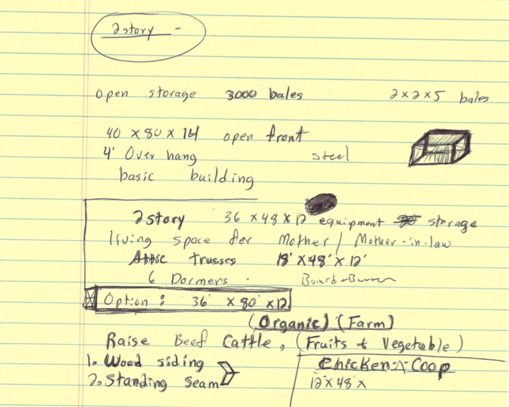 2 story -
open storage 3000 bales 2 x 2 x 5 bales
40 x 80 x 14 open front
4' Over hang steel
basic building
2 story 36 x 48 x 12 equipment storage
living space for Mother / Mother-in-law
Attic trusses 18' x 48' x 12'
6 Dormers -
Option: 36' x 80' x 12
(Organic) (Farm)
Raise Beef Cattle, (Fruits & Vegetable)
1. Wood siding
2. Standing Seam
Chicken Coop
12' x 48' x